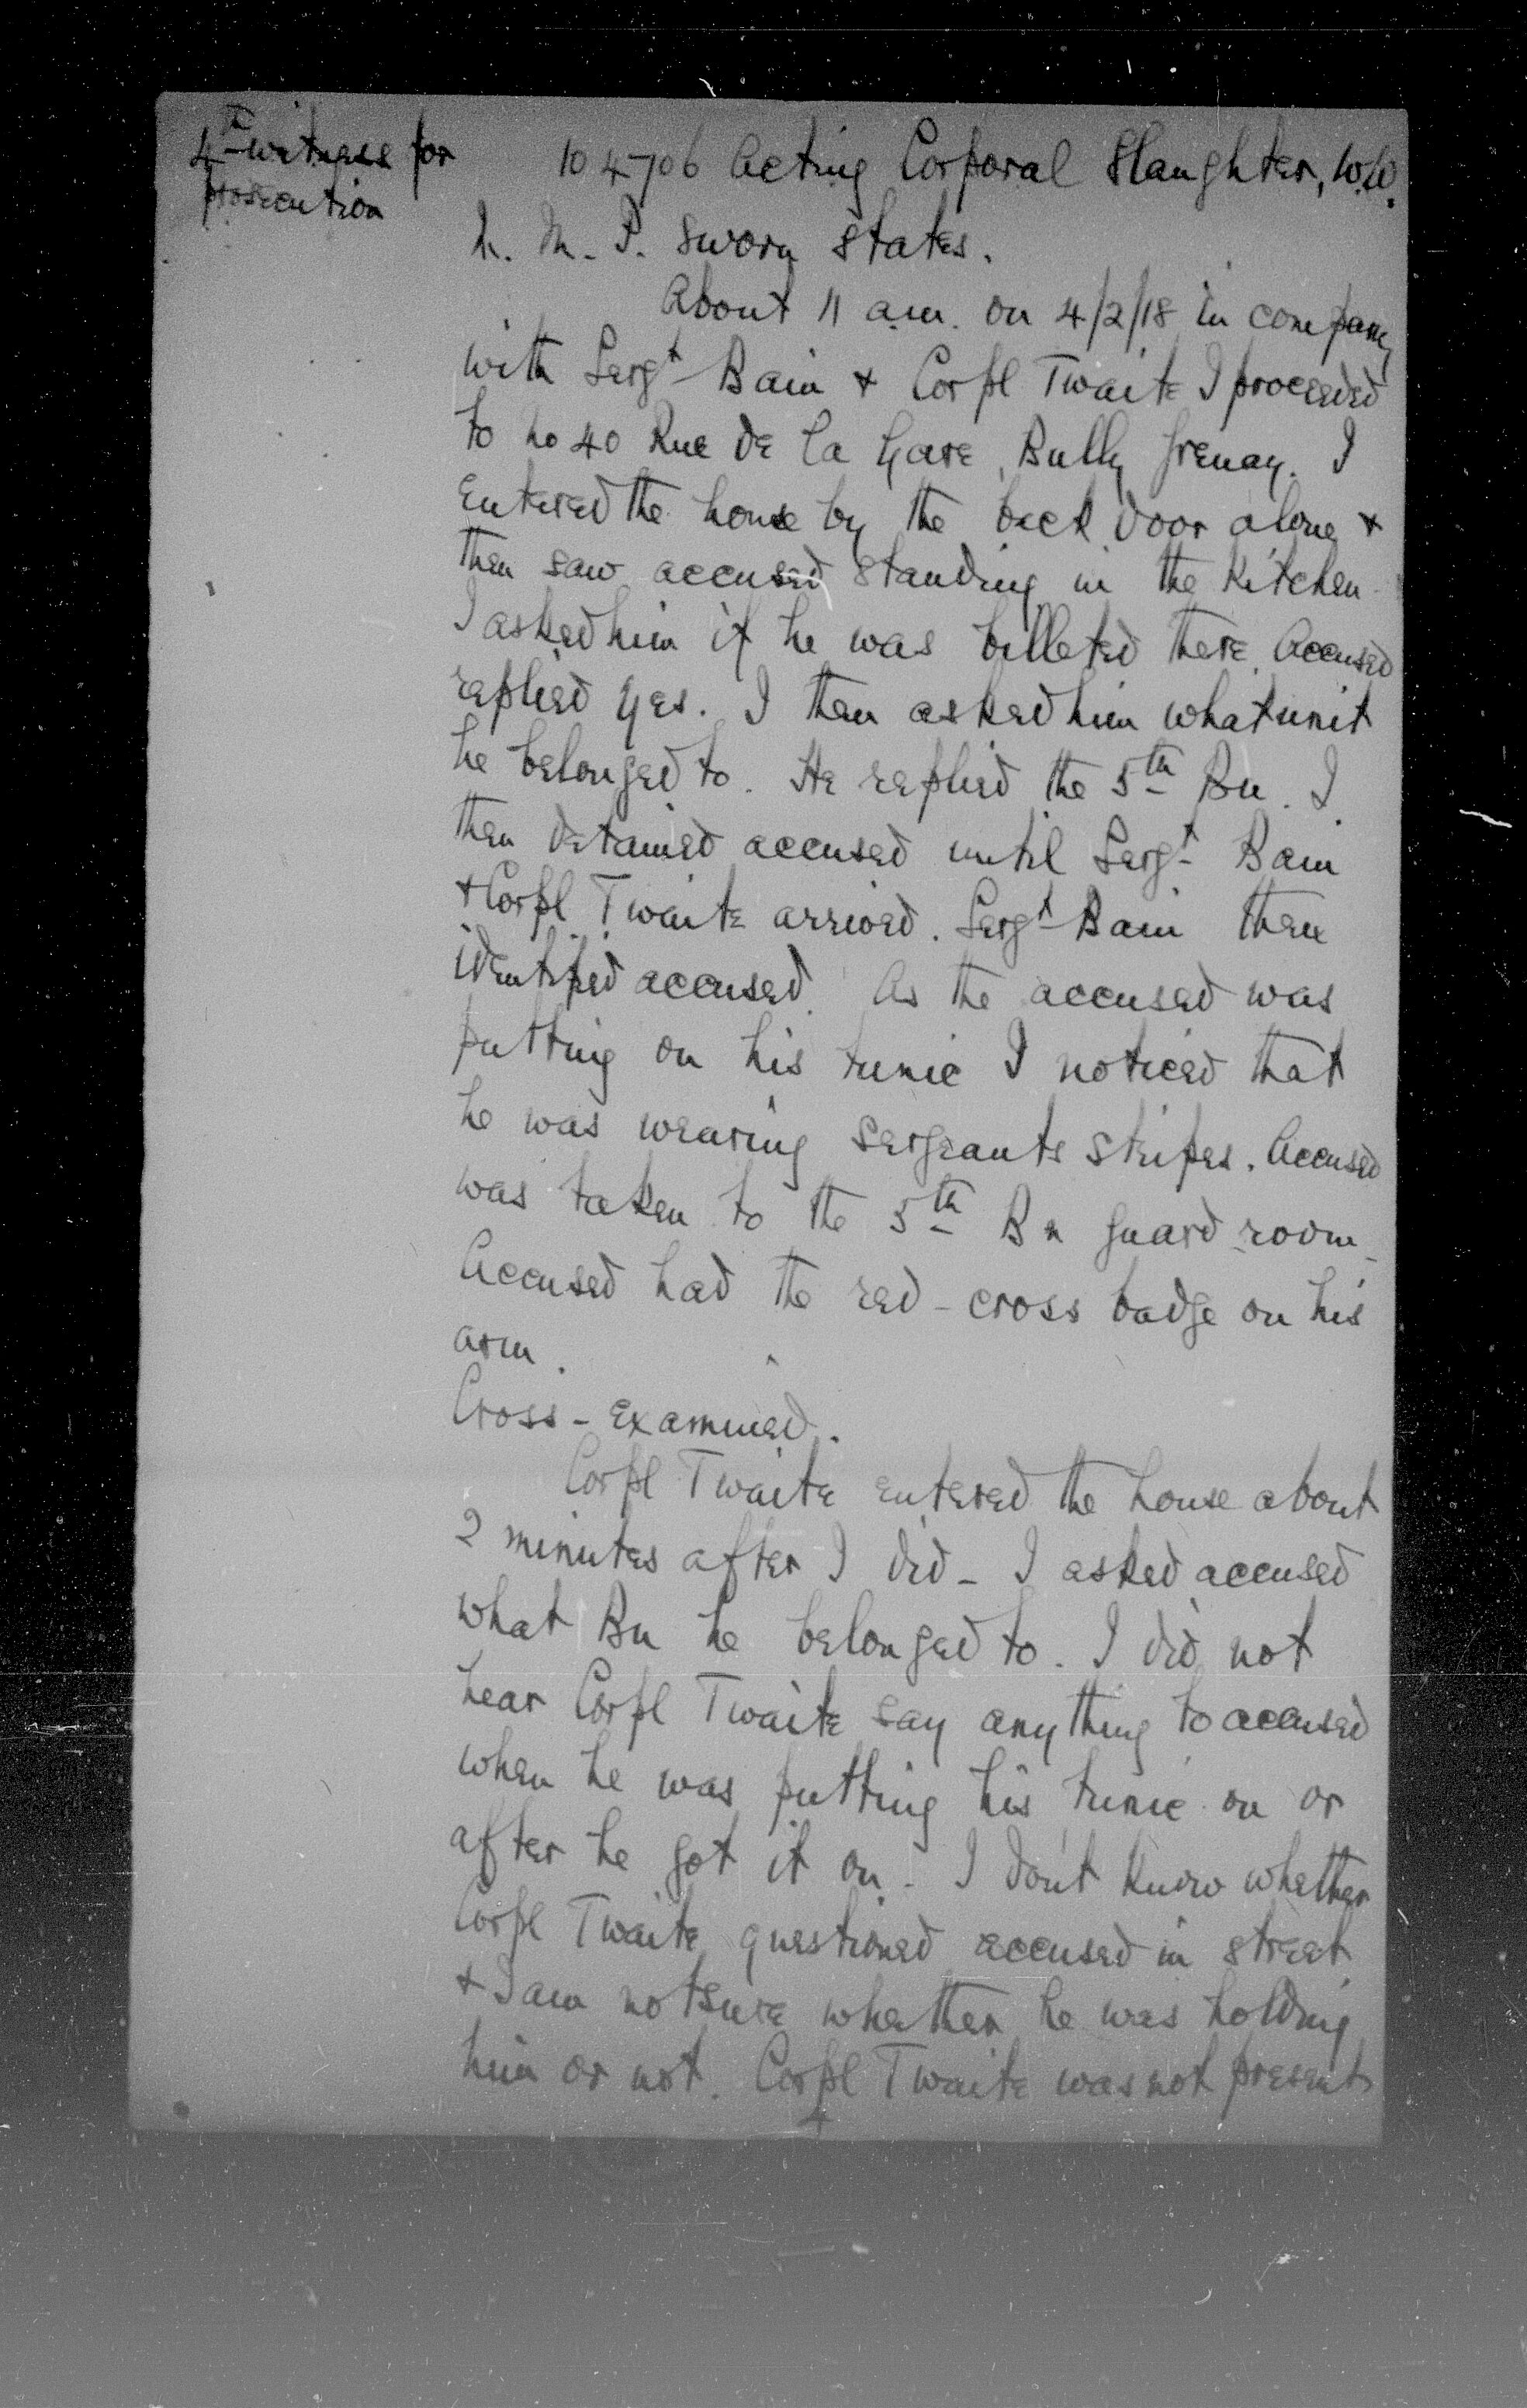 4th witness for
prosecution
104706 Acting Corporal Slaughter, W.W.
C. M. P. sworn states.
About 11 am. on 4/2/18 in company
with Sergt Bain + Corpl Twaite I proceeded
to no 40 Rue de la Gare, Bully Grenay. I
entered the house by the back door alone +
then saw accused standing in the kitchen.
I asked him if he was billeted there. Accused
replied yes. I then asked him what unit
he belonged to. He replied the 5th Bn. I
then detained accused until Sergt Bain
+ Corpl Twaite arrived. Sergt Bain then
identified accused. As the accused was
putting on his tunic I noticed that
he was wearing sergeants stripes. Accused
was taken to the 5th Bn guard-room.
Accused had the red-cross badge on his
arm.
Cross-examined.
Corpl Twaite entered the house about
2 minutes after I did - I asked accused
what Bn he belonged to. I did not
hear Corpl Twaite say anything to accused
when he was putting his tunic on or
after he got it on. I don't know whether
Corpl Twaite questioned accused in street
+ I am not sure whether he was holding
him or not. Corpl Twaite was not present
4